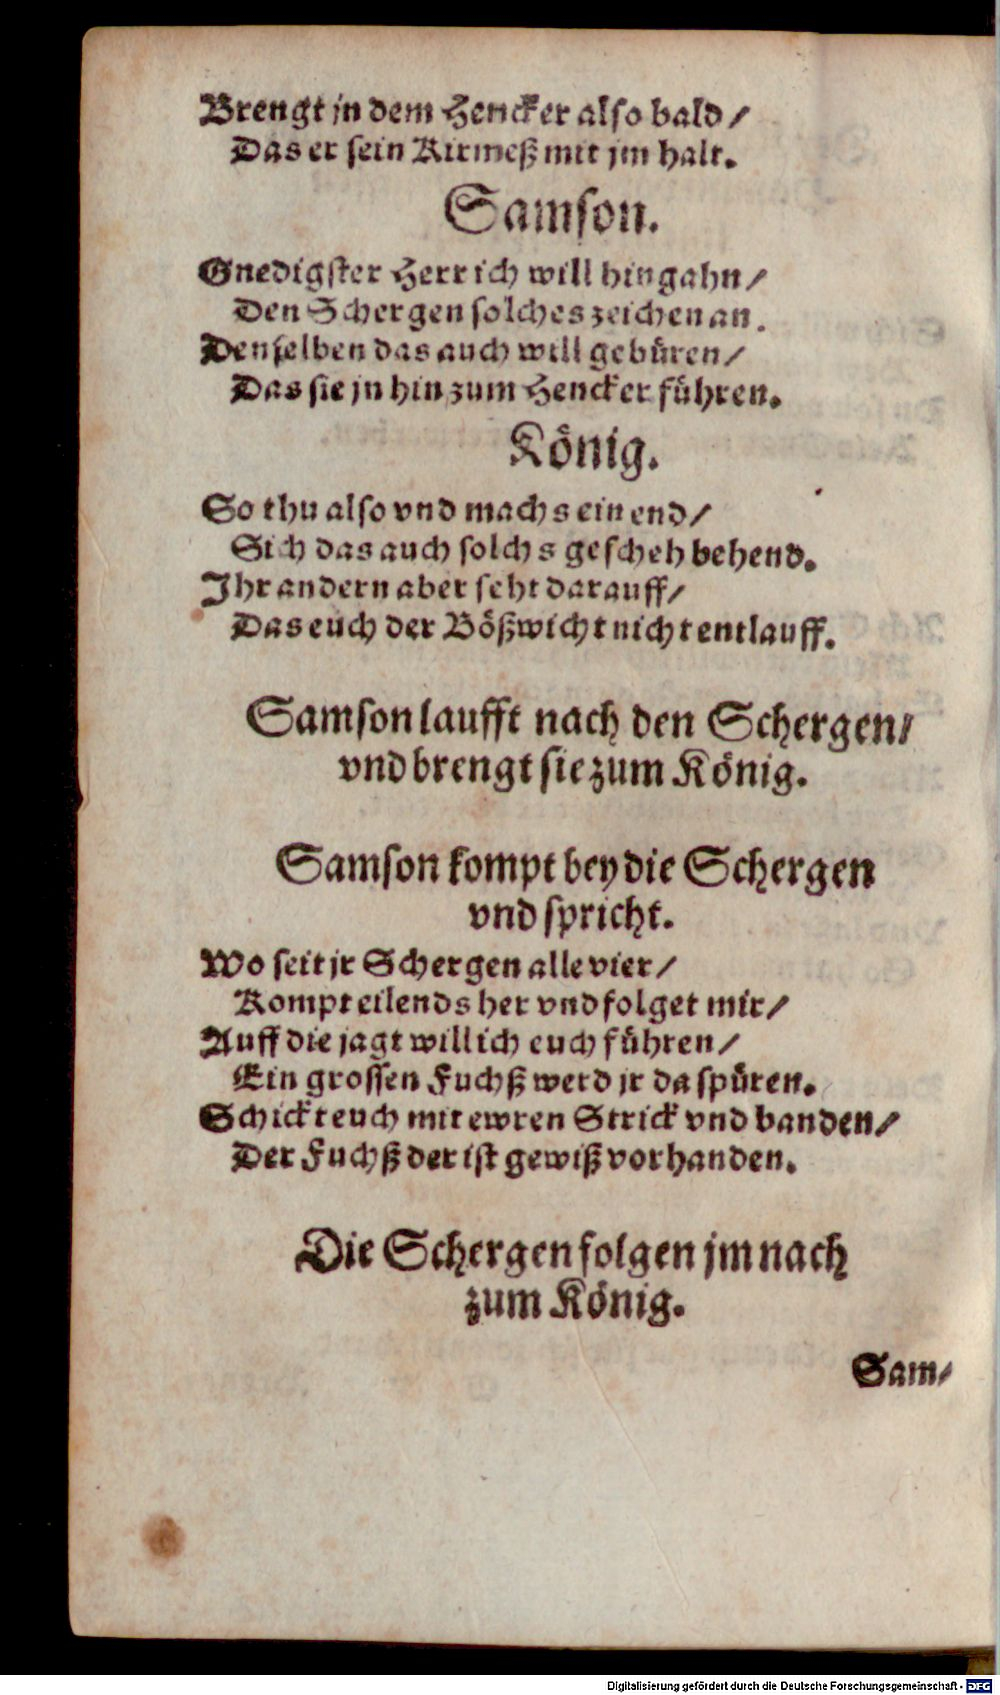 Brengt jn dem Hencker also bald /
Das er sein Kirmeß mit jm halt.
Samson.
Gnedigster Herr ich will hin gahn /
Den Schergen solches zeichen an.
Denselben das auch will gebüren /
Das sie jn hin zum Hencker führen.
König.
So thu also vnd machs ein end /
Sich das auch solchs gescheh behend.
Ihr andern aber seht darauff /
Das euch der Bößwicht nicht entlauff.
Samson laufft nach den Schergen /
vnd brengt sie zum König.
Samson kompt bey die Schergen
vnd spricht.
Wo seit jr Schergen alle vier /
Kompt eilends her vnd folget mir /
Auff die jagt will ich euch führen /
Ein grossen Fuchß werd jr da spüren.
Schickt euch mit ewren Strick vnd banden /
Der Fuchß der ist gewiß vorhanden.
Die Schergen folgen jm nach
zum König.
Sam-
Digitalisierung gefördert durch die Deutsche Forschungsgemeinschaft - DFG